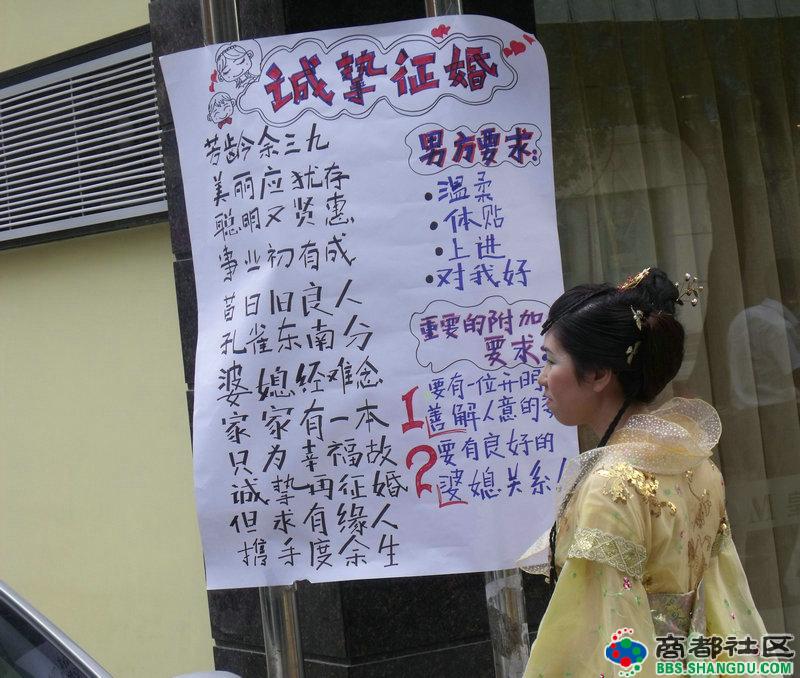 诚挚征婚
芳龄余三九
美丽应犹存
聪明又贤惠
事业初有成
昔日旧良人
孔雀东南分
婆媳经难念
家家有一本
只为幸福故
诚挚再征婚
但求有缘人
携手度余生
男方要求:
·温柔
·体贴
·上进
·对我好
重要的附加
要求:
1 要有一位开明
善解人意的
2 要有良好的
婆媳关系!
商都社区
BBS.SHANGDU.COM